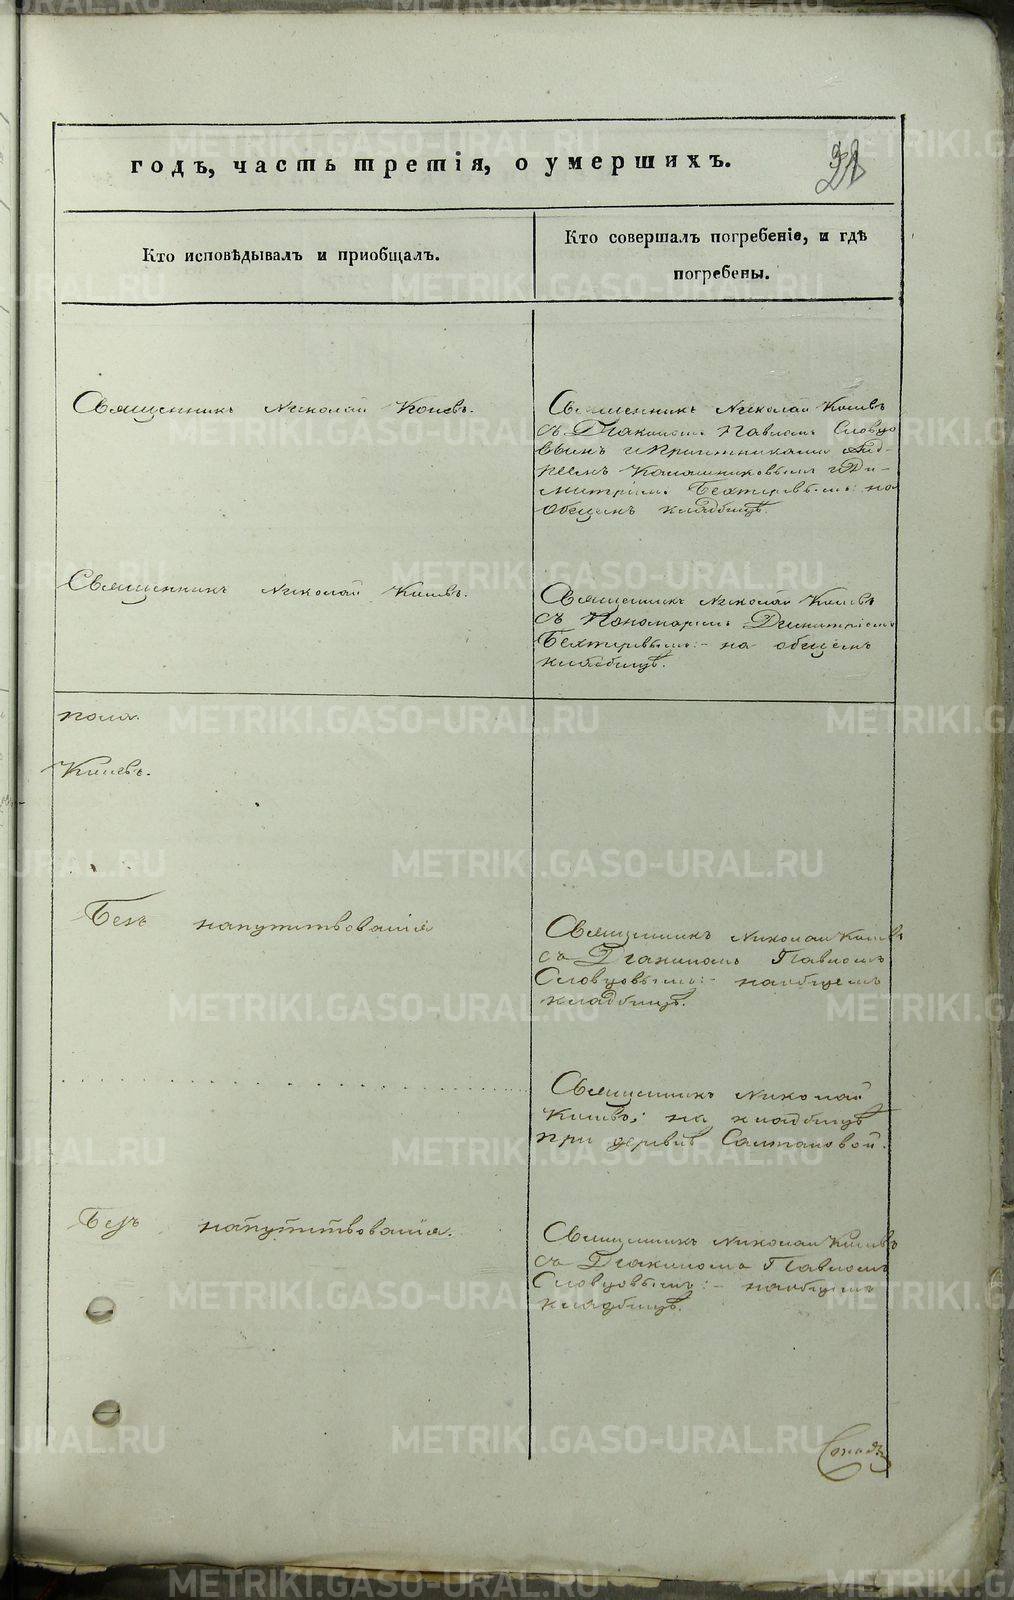 годъ, часть третія, о умершихъ.
Кто исповѣдывалъ и пріобщалъ.
Кто совершалъ погребеніе, и гдѣ
погребены.
Священникъ Николай Коневъ.
Священникъ Николай Коневъ
съ Діакономъ Павломъ Словцо
вымъ и причетниками Анд-
реемъ Калашниковымъ и Ди-
митріемъ Бехтеревымъ: на
общемъ кладбищѣ.
Священникъ Николай Коневъ.
Священникъ Николай Коневъ
съ Пономаремъ Димитріемъ
Бехтеревымъ:- на общемъ
кладбищѣ.
пола.
Коневъ.
Безъ напутствованія
Священникъ Николай Коневъ
съ Діакономъ Павломъ
Словцовымъ:- на общемъ
кладбищѣ.
Священникъ Николай
Коневъ; на кладбищѣ
при деревнѣ Салтановой.
Безъ напутствованія.
Священникъ Николай Коневъ
съ Діакономъ Павломъ
Словцовымъ:- на общемъ
кладбищѣ.
METRIKI.GASO-URAL.RU